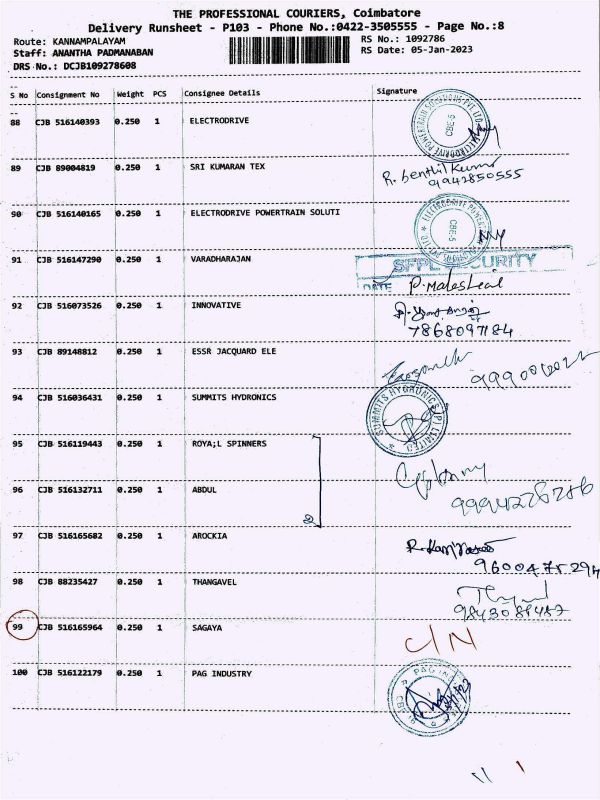 THE PROFESSIONAL COURIERS, Coimbatore
Delivery Runsheet - P103 - Phone No.:0422-3505555 - Page No.:8
Route: KANNAMPALAYAM
RS No.: 1092786
Staff: ANANTHA PADMANABAN
RS Date: 05-Jan-2023
DRS No.: DCJB109278608
S No Consignment No Weight PCS Consignee Details Signature
88 CJB 516140393 0.250 1 ELECTRODRIVE
CBE-5
89 CJB 89004819 0.250 1 SRI KUMARAN TEX
R. Senthil Kumar
9942850555
90 CJB 516140165 0.250 1 ELECTRODRIVE POWERTRAIN SOLUTI
CBE-5
91 CJB 516147290 0.250 1 VARADHARAJAN
SFPL SECURITY
DATE
92 CJB 516073526 0.250 1 INNOVATIVE
7868097184
93 CJB 89148812 0.250 1 ESSR JACQUARD ELE
94 CJB 516036431 0.250 1 SUMMITS HYDRONICS
SUMMITS HYDRONICS (P) LIMITED
95 CJB 516119443 0.250 1 ROYA;L SPINNERS
96 CJB 516132711 0.250 1 ABDUL
2
97 CJB 516165682 0.250 1 AROCKIA
98 CJB 88235427 0.250 1 THANGAVEL
99 CJB 516165964 0.250 1 SAGAYA
C/N
100 CJB 516122179 0.250 1 PAG INDUSTRY